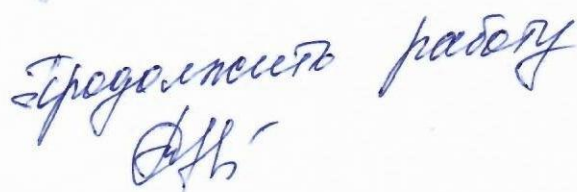 Продолжить работу